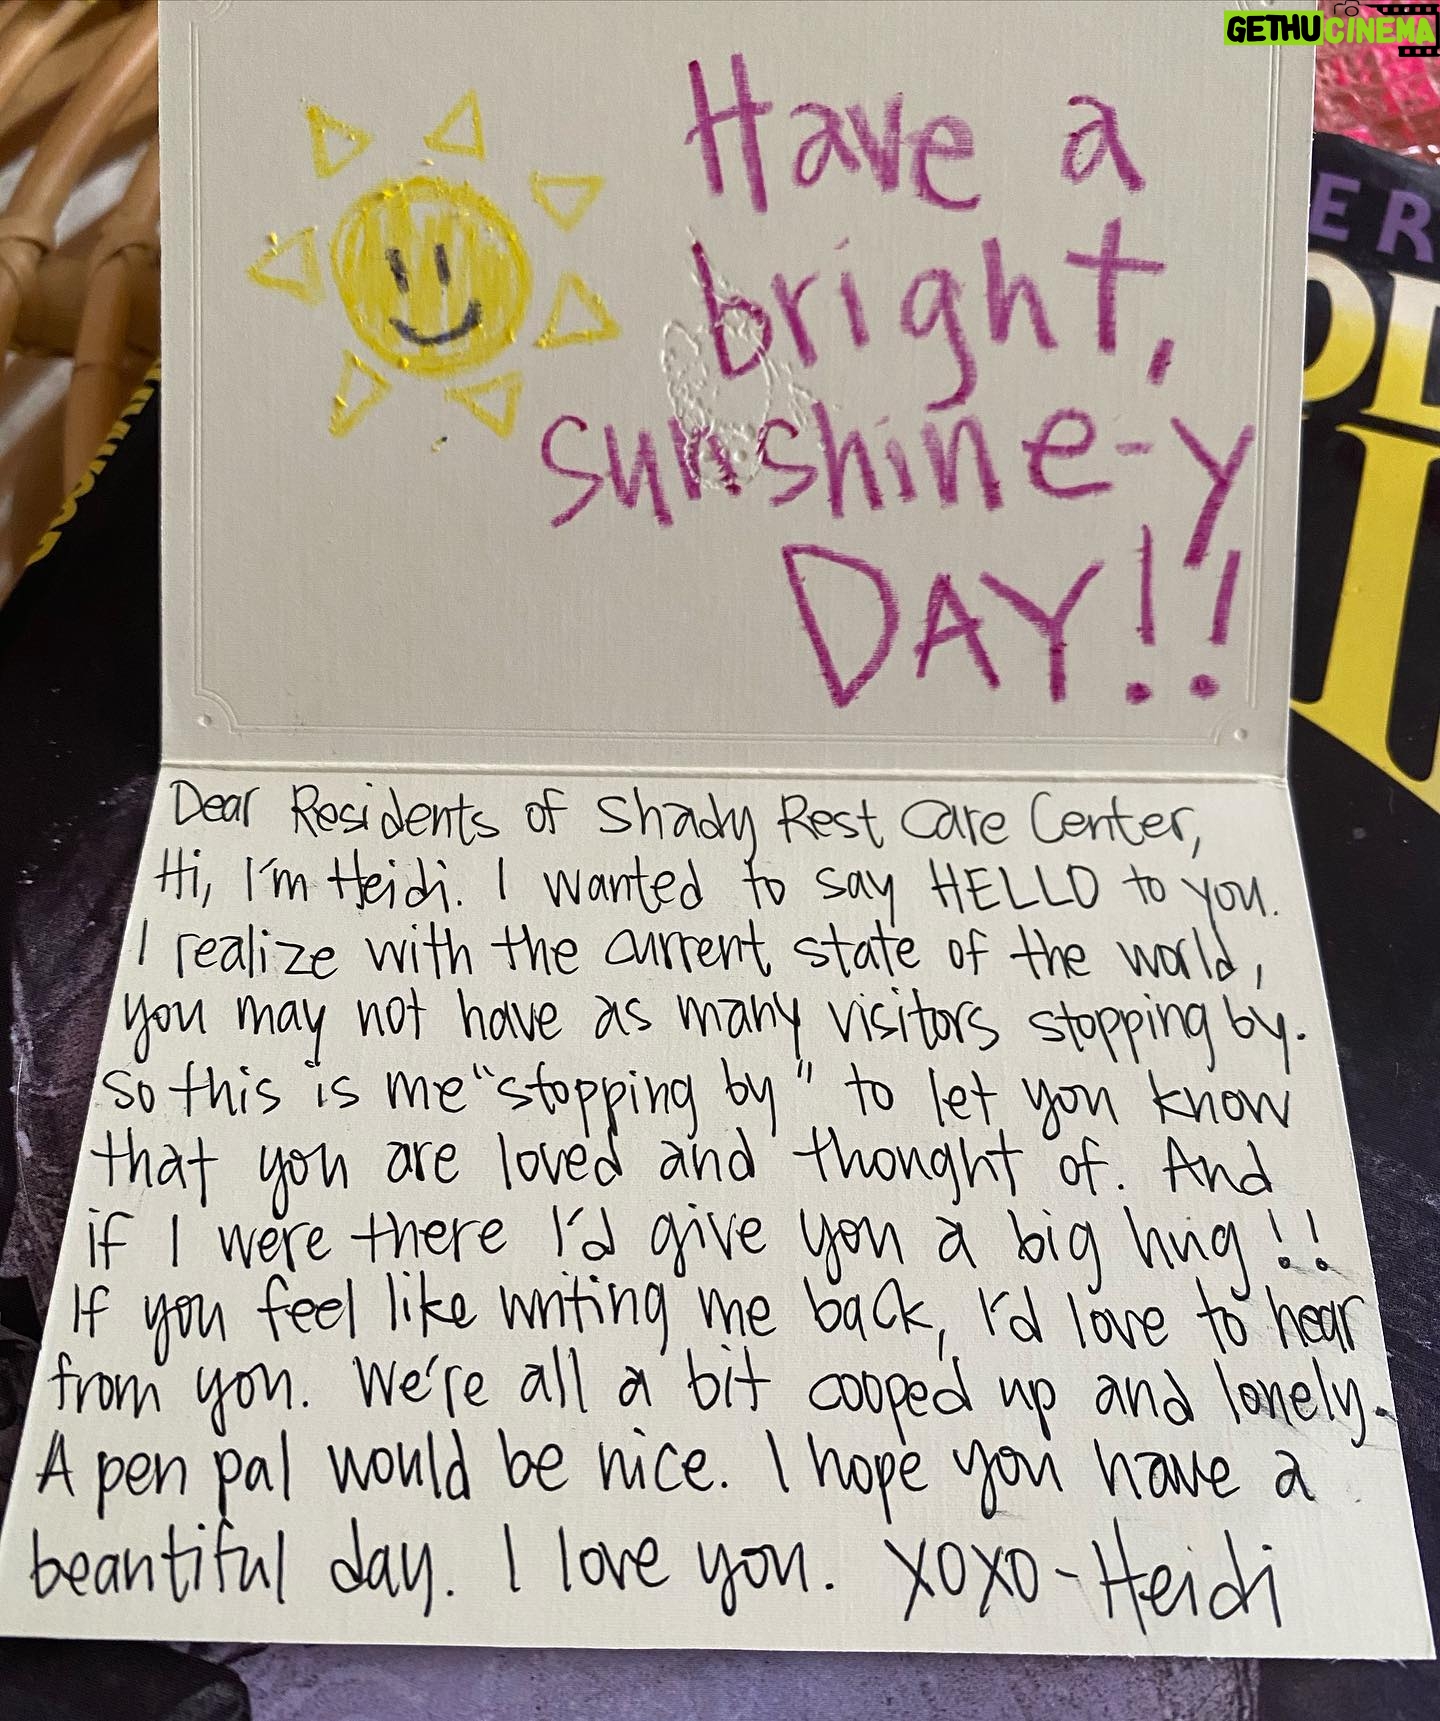 GETHU CINEMA
Have a
bright,
sunshine-y
DAY!!
ER
Dear Residents of Shady Rest Care Center,
Hi, I'm Heidi. I wanted to say HELLO to you.
I realize with the current state of the world,
you may not have as many visitors stopping by.
So this is me "stopping by" to let you know
that you are loved and thought of. And
if I were there I'd give you a big hug!!
If you feel like writing me back, I'd love to hear
from you. We're all a bit cooped up and lonely.
A pen pal would be nice. I hope you have a
beautiful day. I love you. XOXO-Heidi